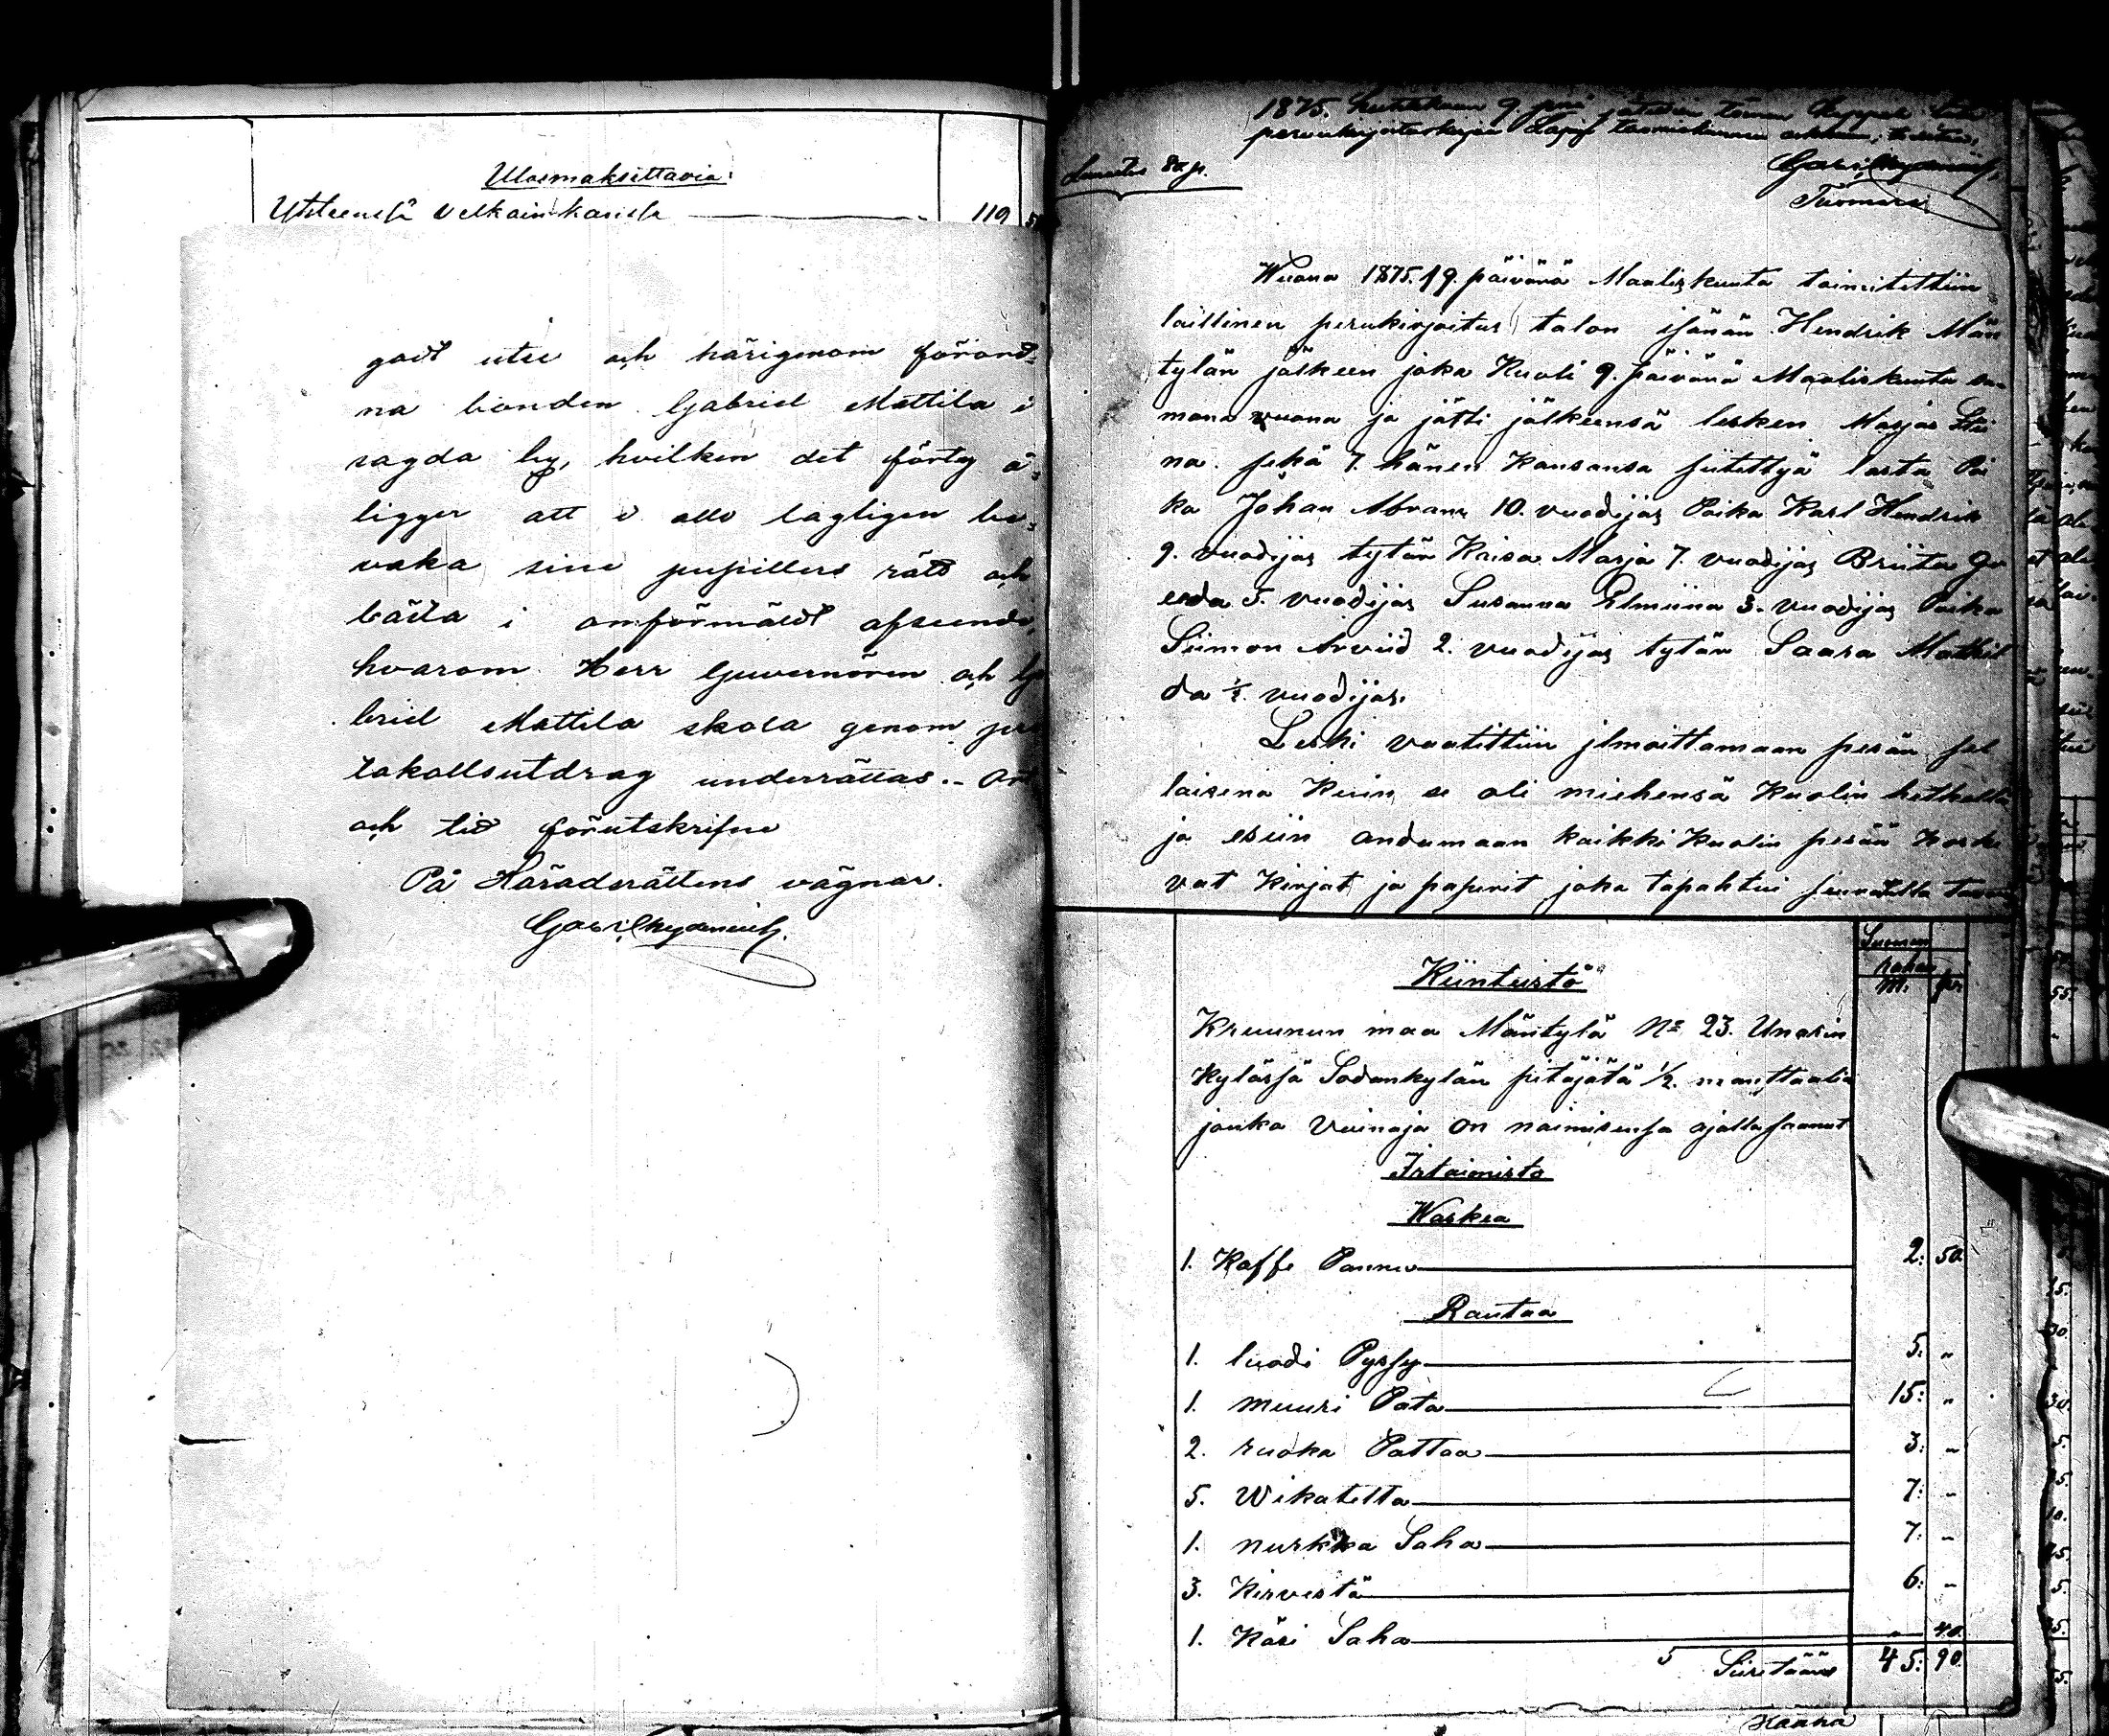 Ulosmaksettavia:
Yhteensä Velkain kanssa 119
godt utse och härigenom förord-
na bonden Gabriel Mattila i
sagda by, hvilken det förty å-
ligger att i allo lagligen be-
vaka sine pupillers rätt och
bästa i omförmäldt afseende,
hvarom Herr Guvernören och Ga
briel Mattila skola genom pro
tokollsutdrag underrättas. Ort
och tid förutskrifne
På Häradsrättens vägnar.
1875. 9. 
perunkirjoituskirjan Lapin tuomiokunnan
Lunastus 80 p.
Tuomari
Wuona 1875. 19. päivänä Maaliskuuta toimitettiin
laillinen perukirjoitus talon isänän Hendrik Män
tylän jälkeen joka Kuoli 9. päivänä Maaliskuuta sa-
mana vuona ja jätti jälkeensä lesken Marja Stii
na. sekä 7. hänen Kansansa siitettyä lasta Poi
ka Johan Abram 10. vuodijas Poika Karl Hendrik
9. vuodijas tytär Kaisa Marja 7. vuodijas Briita
5. vuodijas Susanna Elmiina 3. vuodijas Poika
Siimon Arviid 2. vuodijas tytär Saara Mathil
da ½. vuodijas.
Leski vaatittiin jlmoittamaan pesän sel
laisena Kuin se oli miehensä Kuolin hetkellä
ja esiin andamaan kaikki Kuolin pesää koske
vat Kirjat ja paperit joka tapahtui seuravalla
Suomen
rahas
M. pi.
Kiinteistö
Kruunun maa Mäntylä No 23. Unarin
Kylässä Sodankylän pitäjätä ½. manttaalia
jonka Vainaja on naimisensa ajalla saanut
Irtaimisto
Waskea
1. Kaffe Pannu 2: 50.
Rautaa
1. luodi Pyssy 5. "
1. muuri Pata 15: "
2. ruoka Pattaa 3: "
5. Wikatetta 7: "
1. nurkka Saha 7: "
3. Kirvestä 6: "
1. Käsi Saha " 40.
Siiretään 45: 90.